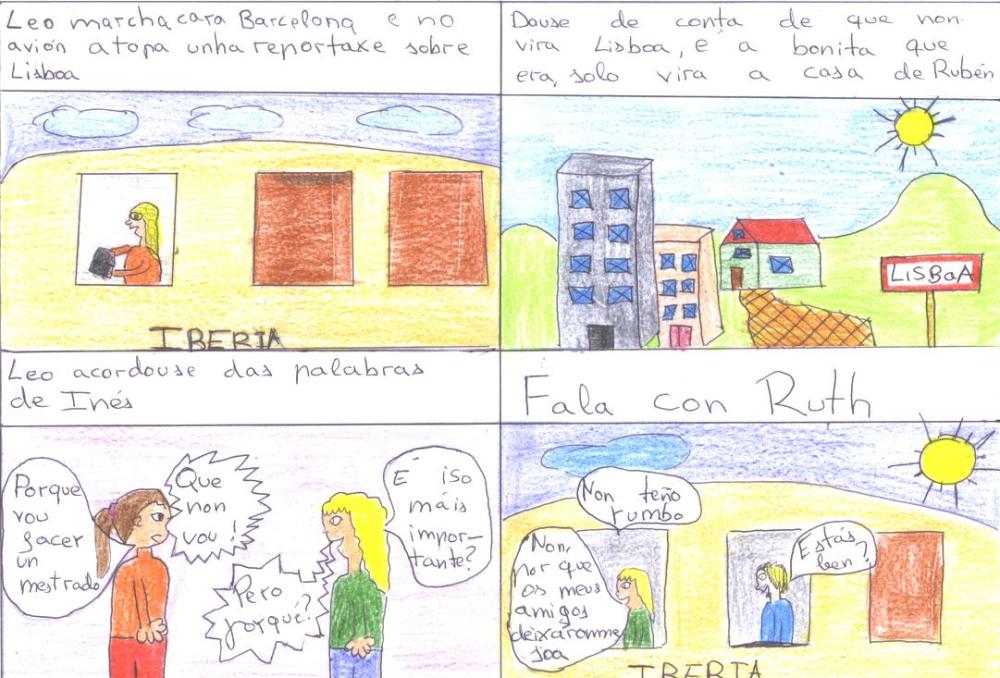 Leo marcha cara Barcelona e no
avión atopa unha reportaxe sobre
Lisboa
IBERIA
Douse de conta de que non
vira Lisboa, e a bonita que
era, solo vira a casa de Rubén
LISBOA
Leo acordouse das palabras
de Inés
Porque
vou
facer
un
mestrado
Que
non
vou!
Pero
porqué?
E iso
máis
impor-
tante?
Fala con Ruth
Non teño
rumbo
Non,
por que
os meus
amigos
deixaronme
soa
Estás
ben?
IBERIA